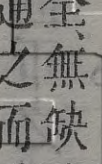 全、無缺
通之而